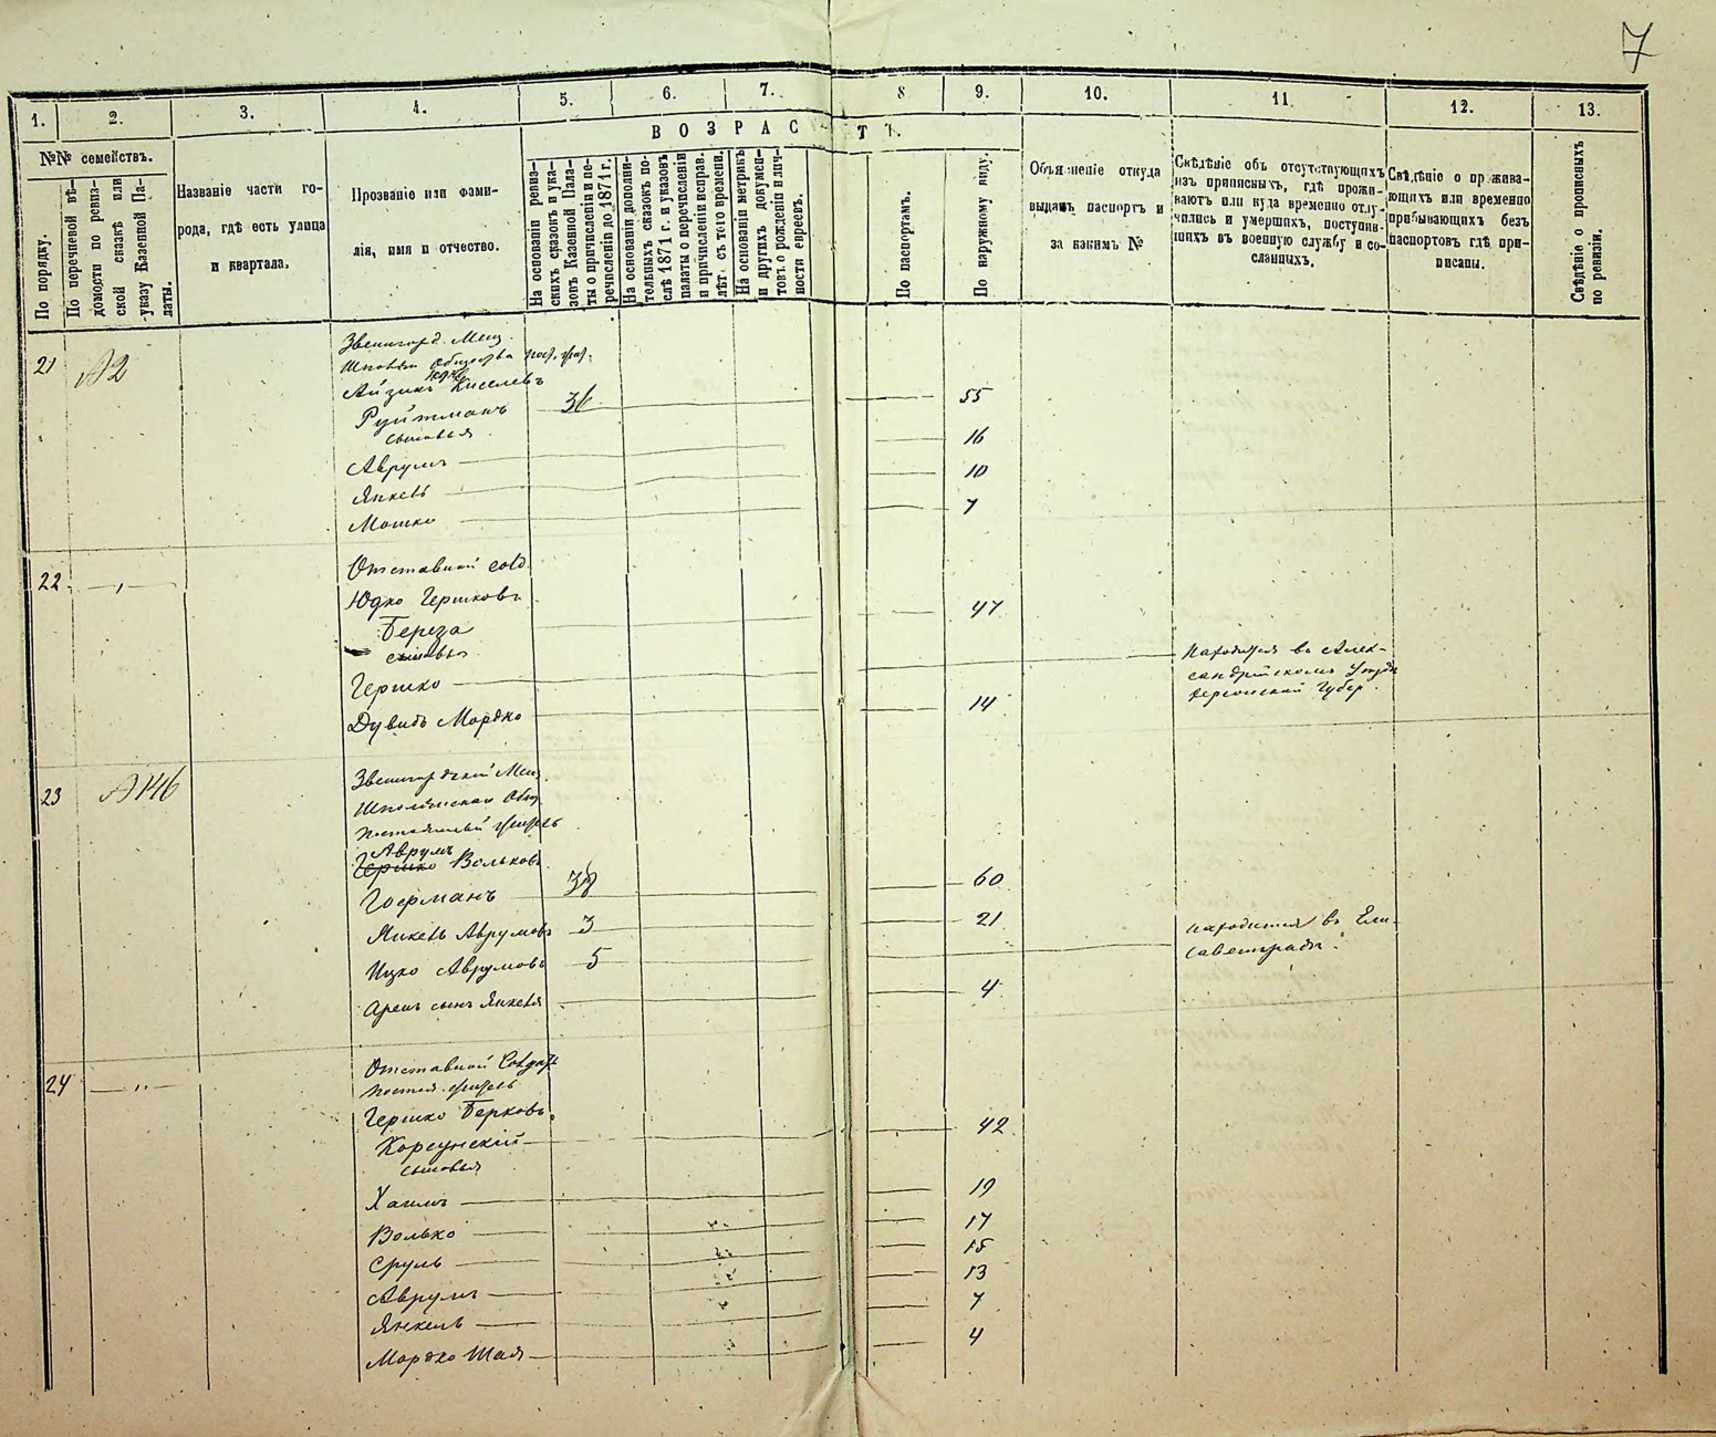 7
1. 2. 3. 4. 5. 6. 7. 8 9. 10. 11 12. 13.
ВОЗРАСТЪ.
№№ семействъ.
По порядку.
По перечневой вѣ-
домости по ревиз-
ской сказкѣ или
указу Казенной Па-
латы.
Названіе части го-
рода, гдѣ есть улица
и квартала.
Прозваніе или фами-
лія, имя и отчество.
На основаніи ревиз-
скихъ сказокъ и ука-
зовъ Казенной Пала-
ты о причисленіи и пе-
речисленіи до 1871 г.
На основаніи дополни-
тельныхъ сказокъ по-
слѣ 1871 г. и указовъ
палаты о перечисленіи
и причисленіи исправ.
лѣт съ того времени.
На основаніи метрикъ
и другихъ докумен-
товъ о рожденіи и лич-
ности евреевъ.
По паспортамъ.
По наружному виду.
Объясненіе откуда
выданъ паспортъ и
за какимъ №
Свѣдѣніе объ отсутствующихъ
изъ приписныхъ, гдѣ прожи-
ваютъ или куда временно отлу-
чились и умершихъ, поступив-
шихъ въ военную службу и со-
сланныхъ.
Свѣдѣніе о прожива-
ющихъ или временно
прибывающихъ безъ
паспортовъ гдѣ при-
писаны.
Свѣдѣніе о прописныхъ
по ревизіи.
21
Звенигород. Мещ.
Айзикъ Киселевъ
Руйтманъ 36 55
сыновья
Аврумъ 16
Янкель 10
Мошко 7
22
Отставной солд
Юдко Гершковъ
Береза 47
сыновья
Гершко находится въ Алек-
сандрійскомъ Уѣздѣ
Херсонской Губер.
Дувидъ Мордко 14
23 146
Звенигородскій Мещ.
Шполянскаго Общ.
постоянный житель
Аврумъ
Гершко Вольковъ
Гоерманъ 38 60
Янкель Аврумовъ 3 21
Ицко Аврумовъ 5 находится въ Ели-
саветградѣ.
Аренъ сынъ Янкеля 4
24
Отставной Солдатъ
постоя. житель
Гершко Берковъ
Корсунскій 42
сыновья
Хаимъ 19
Волько 17
Сруль 15
Аврумъ 13
Янкель 7
Мордко Шая 4